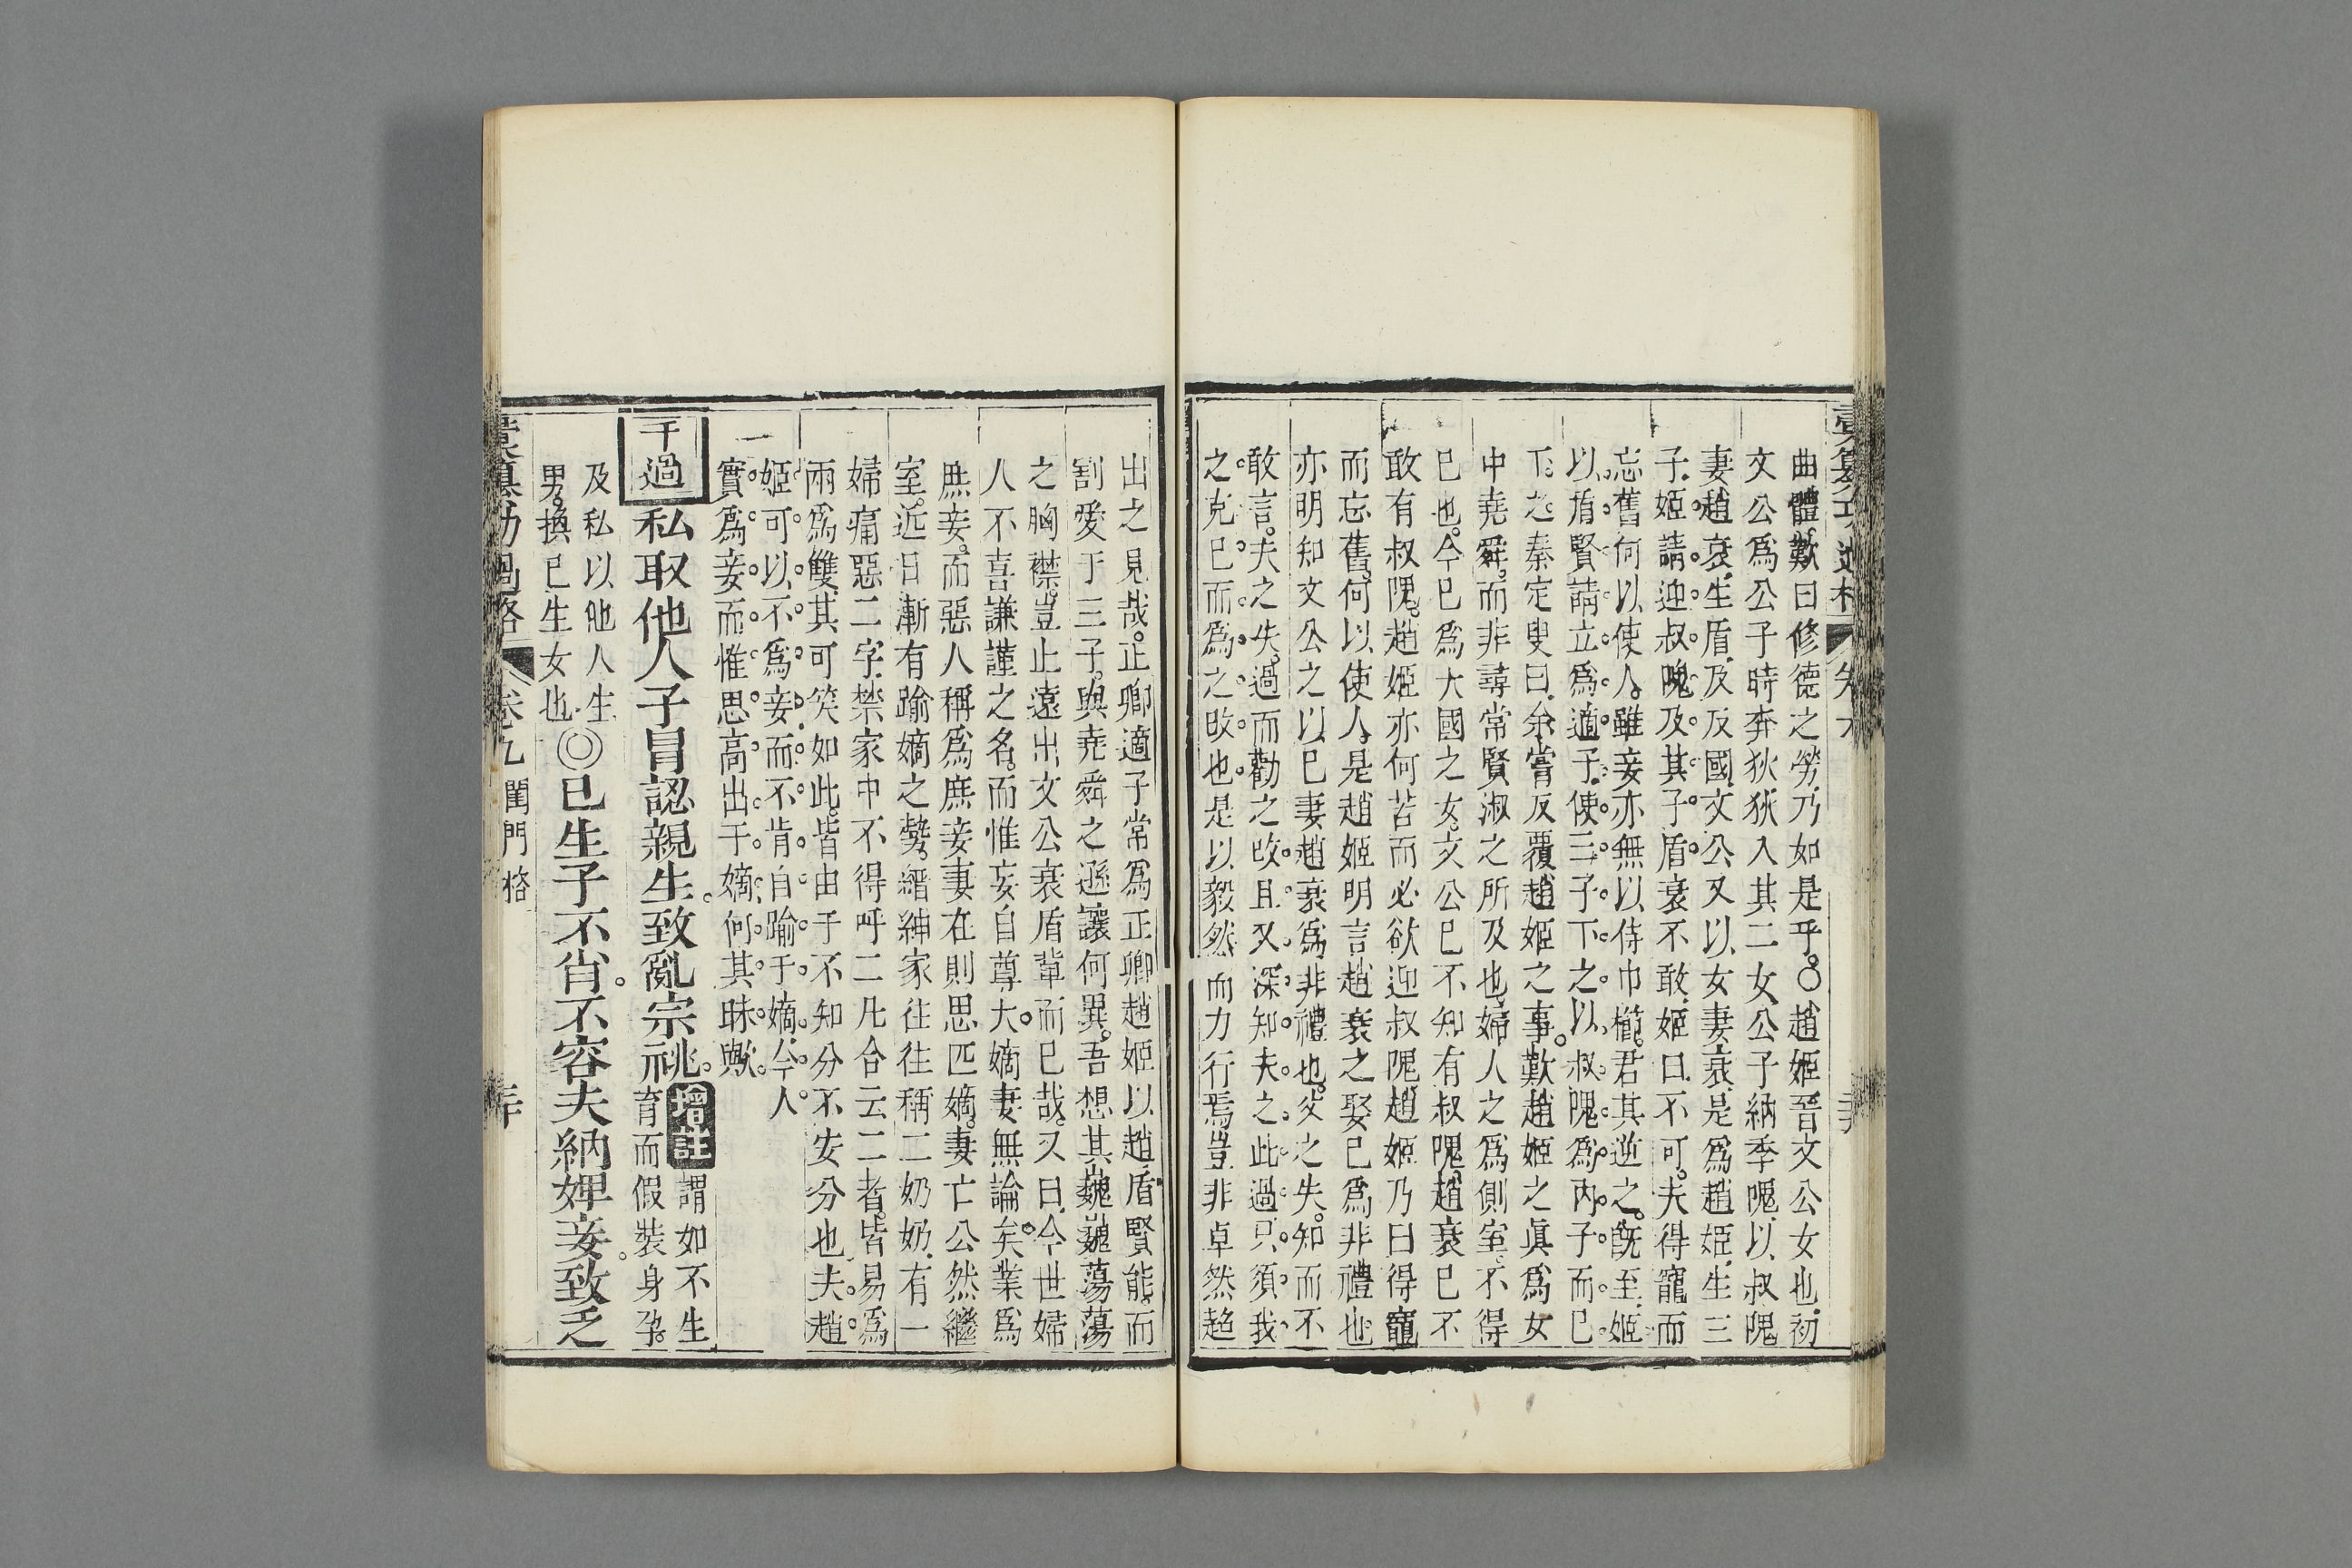 曲體歎曰修德之勞乃如是乎〇趙姬晉文公女也初
文公爲公子時奔狄狄入其二女公子納季隗以叔隗
妻趙衰生盾及反國文公又以女妻衰是爲趙姬生三
子姬請迎叔隗及其子盾衰不敢姬曰不可夫得寵而
忘舊何以使人雖妾亦無以侍巾櫛君其逆之既至姬
以盾賢請立爲適子使三子下之以叔隗爲內子而已
下之秦定叟曰余嘗反覆趙姬之事歎趙姬之眞爲女
中堯舜而非尋常賢淑之所及也婦人之爲側室不得
已也今已爲大國之女文公已不知有叔隗趙衰已不
敢有叔隗趙姬亦何苦而必欲迎叔隗趙姬乃曰得寵
而忘舊何以使人是趙姬明言趙衰之娶已爲非禮也
亦明知文公之以已妻趙衰爲非禮也父之失知而不
敢言夫之失過而勸之改且又深知夫之此過只須我
之克已而爲之改也是以毅然而力行焉豈非卓然超
出之見哉正卿適子常爲正卿趙姬以趙盾賢能而
割愛于三子與堯舜之遜讓何異吾想其巍巍蕩蕩
之胸襟豈止遠出文公衰盾輩而已哉又曰今世婦
人不喜謙謹之名而惟妄自尊大嫡妻無論矣業爲
庶妾而惡人稱爲庶妾妻在則思匹嫡妻亡公然繼
室近日漸有踰嫡之勢縉紳家往往稱二奶奶有一
婦痛惡二字禁家中不得呼二凡合云二者皆易爲
兩爲雙其可笑如此皆由于不知分不安分也夫趙
姬可以不爲妾而不肯自踰于嫡今人
實爲妾而惟思高出于嫡何其昧歟
千過 私取他人子冒認親生致亂宗祧 增註 謂如不生
育而假裝身孕
及私以他人生
男換已生女也◎已生子不肖不容夫納婢妾致乏
卷九 閨門格